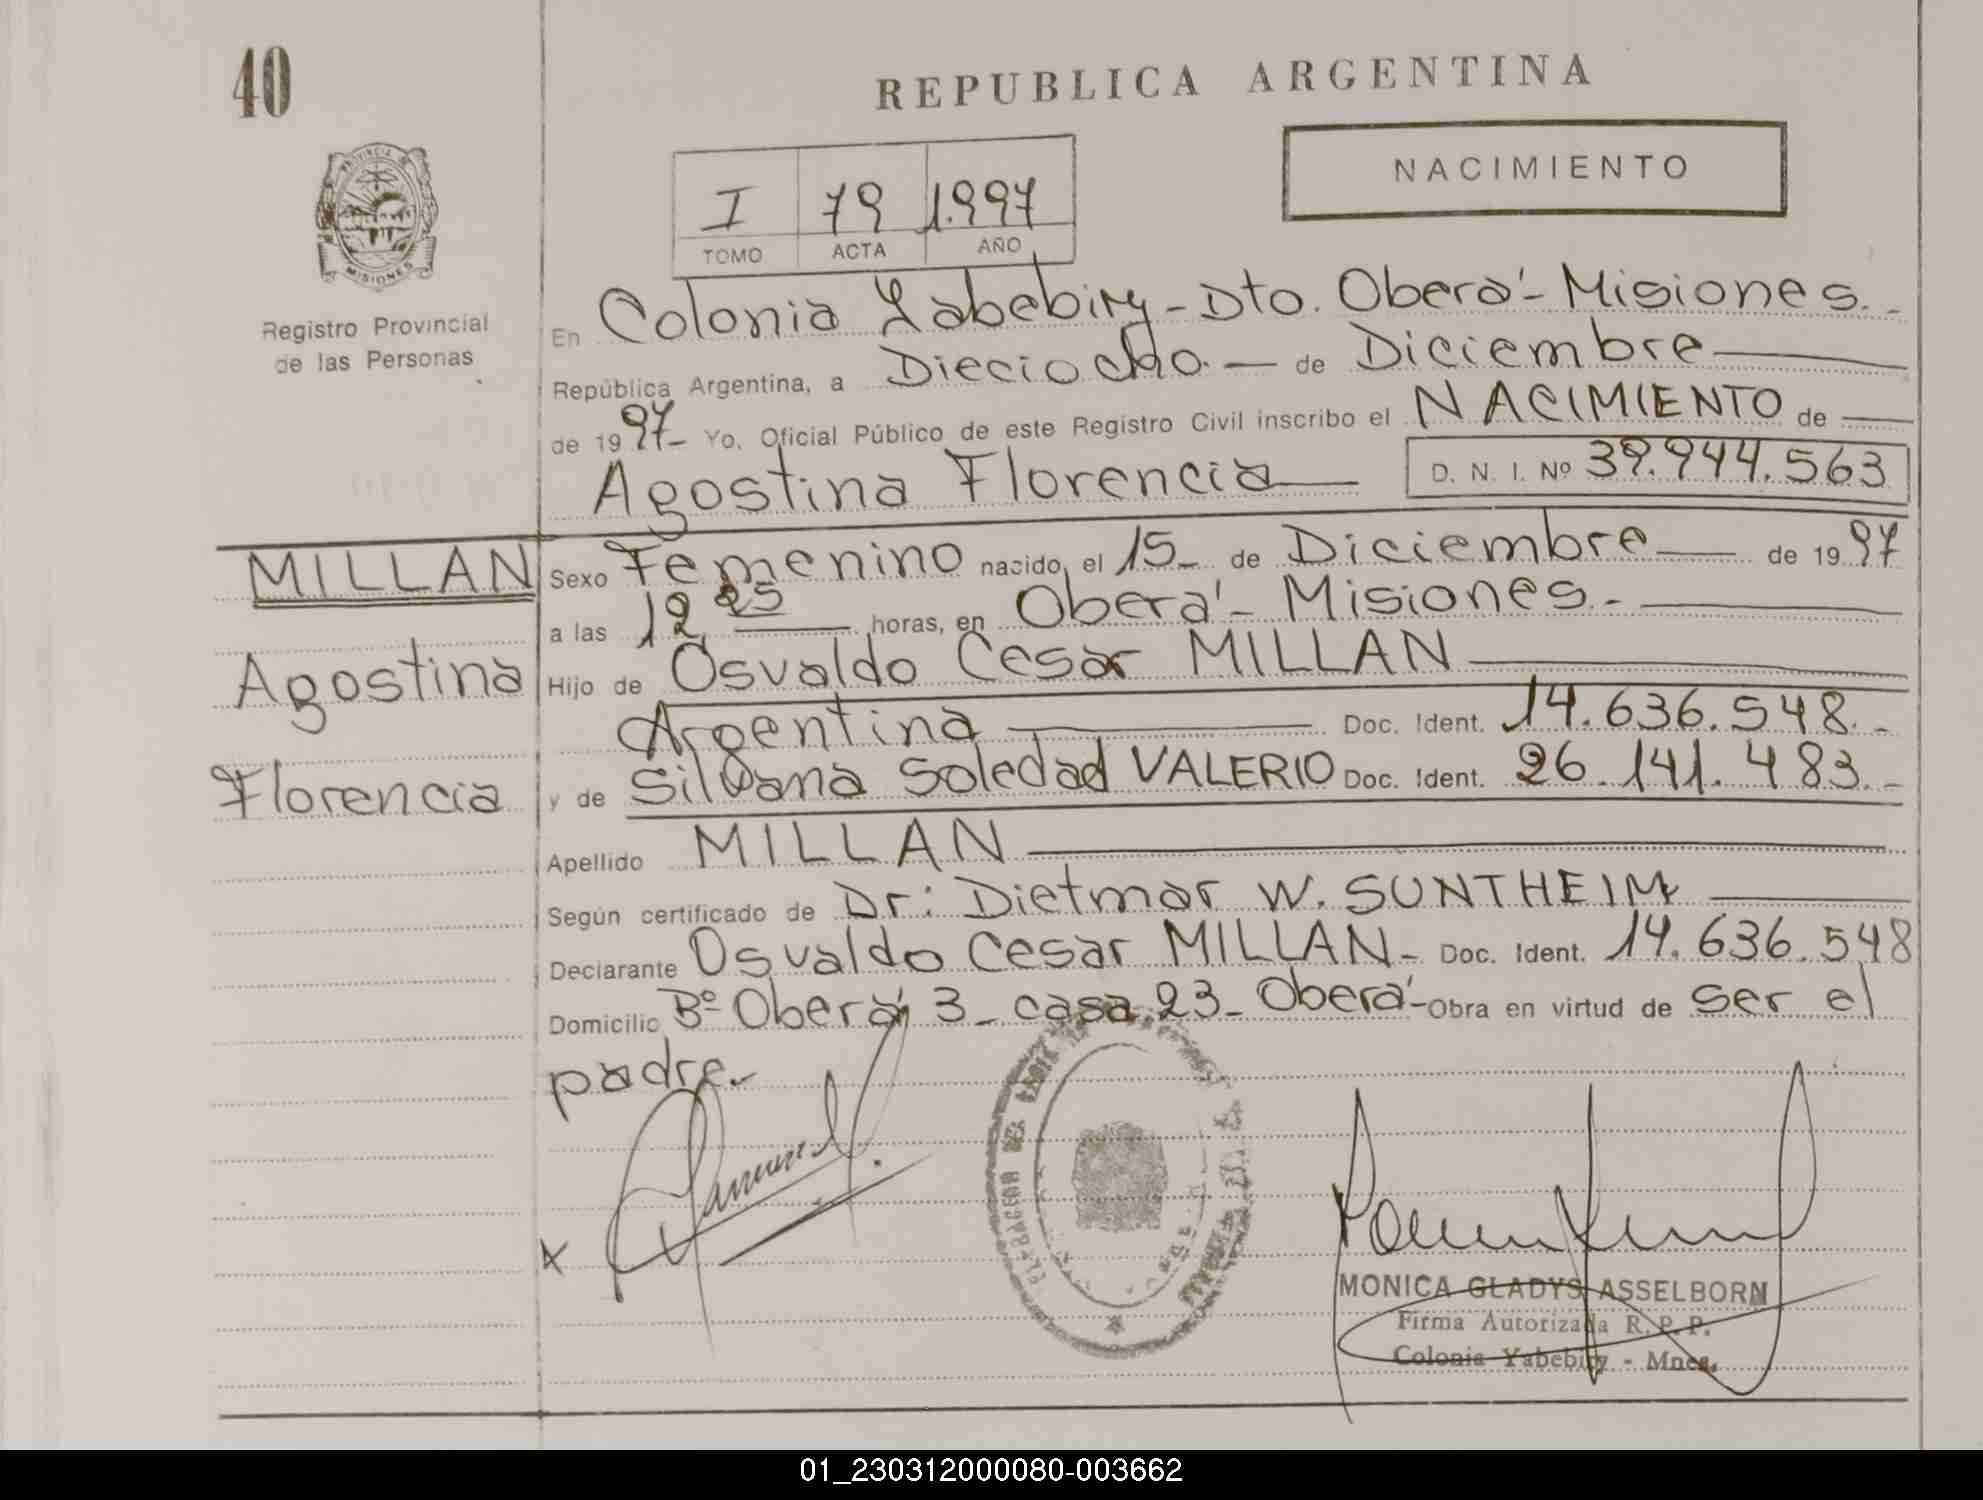 40
REPUBLICA ARGENTINA
NACIMIENTO
I 79 1.997
TOMO ACTA AÑO
PROVINCIA DE
MISIONES
Registro Provincial
de las Personas
En Colonia Yabebiry - Dto. Oberá - Misiones. -
República Argentina, a Dieciocho. — de Diciembre
de 19 97 - Yo, Oficial Público de este Registro Civil inscribo el NACIMIENTO de
Agostina Florencia D. N. I. Nº 39.944.563
MILLAN
Agostina
Florencia
Sexo Femenino nacido el 15 - de Diciembre de 19 97
a las 12 25 horas, en Oberá - Misiones. -
Hijo de Osvaldo Cesar MILLAN
Argentina Doc. Ident. 14.636.548. -
y de Silvana Soledad VALERIO Doc. Ident. 26.141.483. -
Apellido MILLAN
Según certificado de Dr: Dietmar W. SUNTHEIM
Declarante Osvaldo Cesar MILLAN - Doc. Ident. 14.636.548
Domicilio Bº Oberá 3 - casa 23 - Oberá - Obra en virtud de ser el
padre. -
x
MONICA GLADYS ASSELBORN
Firma Autorizada R. P. P.
Colonia Yabebiry - Mnes.
01_230312000080-003662